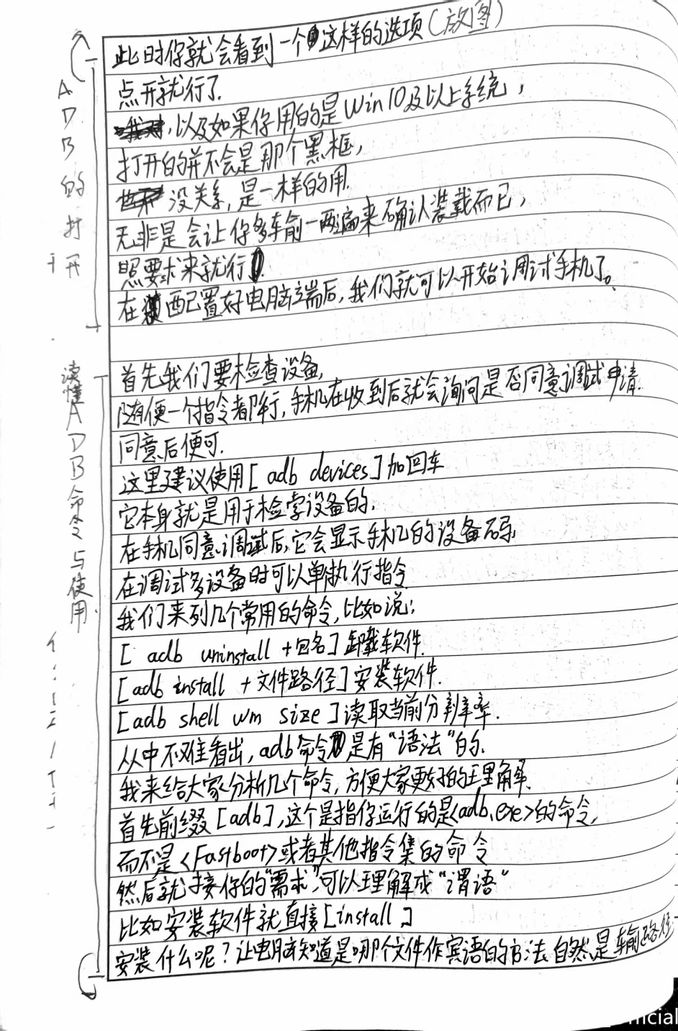 此时你就会看到一个这样的选项(放图)
点开就行了.
,以及如果你用的是Win10及以上系统,
打开的并不会是那个黑框,
没关系,是一样的用.
无非是会让你多车前一两遍来确认装载而已,
照要求来就行
在配置好电脑端后,我们就可以开始调试手机了。
ADB的打开
首先我们要检查设备,
随便一个指令都行,手机在收到后就会询问是否同意调试申请.
同意后便可.
这里建议使用[adb devices]加回车
它本身就是用于检字设备的,
在手机同意调试后,它会显示手机的设备码,
在调试多设备时可以单执行指令
我们来列几个常用的命令,比如说:
[adb uninstall +包名]卸载软件.
[adb install +文件路径]安装软件.
[adb shell wm size]读取当前分辨率.
从中不难看出,adb命令是有"语法"的.
我来给大家分析几个命令,方便大家更好的理解.
首先前缀[adb],这个是指你运行的是<adb.exe>的命令,
而不是<Fastboot>或者其他指令集的命令
然后就接你的"需求",可以理解成"谓语"
比如安装软件就直接[install]
安装什么呢?让电脑知道是哪个文件作宾语的方法自然是输路径
读懂ADB命令与使用
ficial